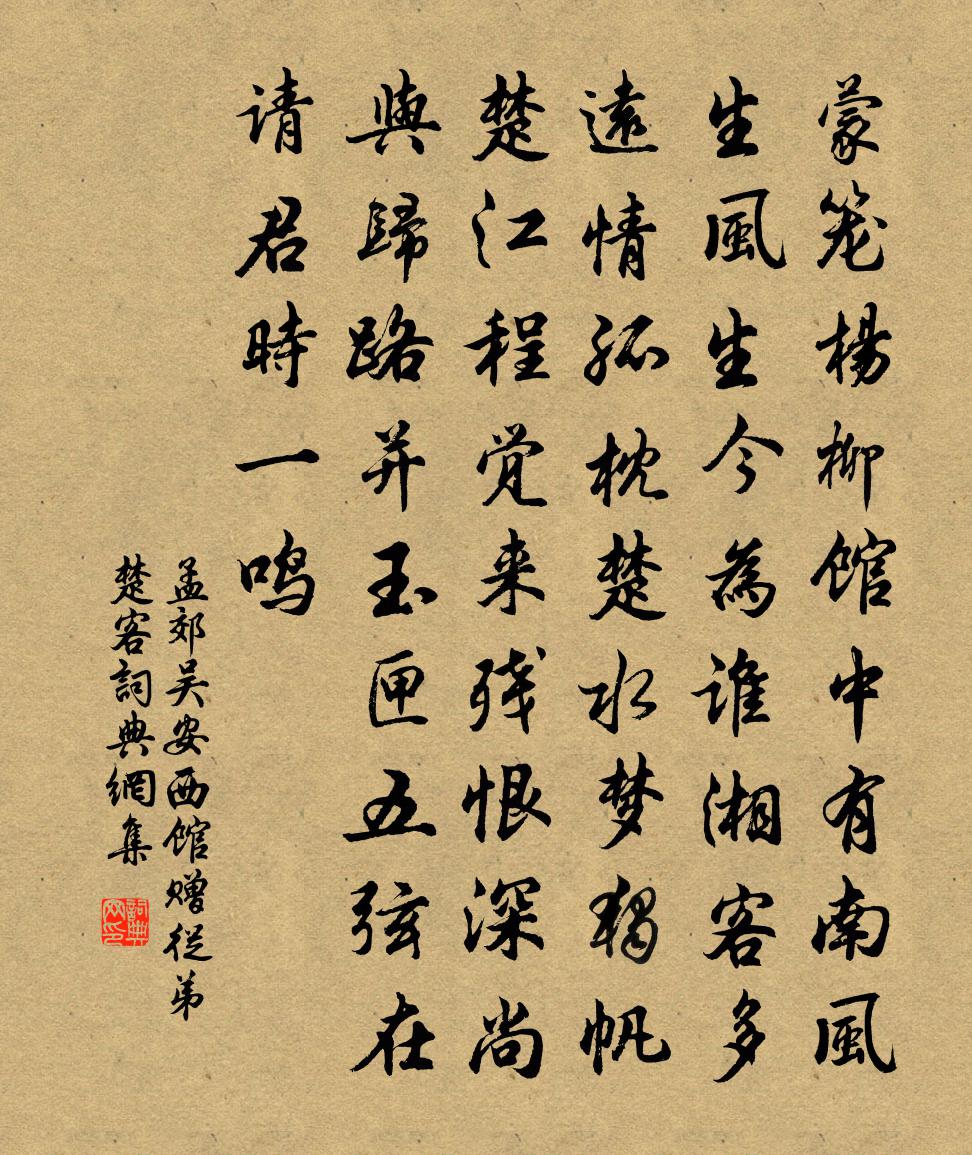 蒙笼楊柳馆中有南風
生風生今為谁湘客多
遠情孤枕楚水梦獨帆
楚江程觉来残恨深尚
與歸路并玉匣五弦在
请君時一鸣
孟郊吴安西馆赠從弟
楚客詞典網集
詞典网印